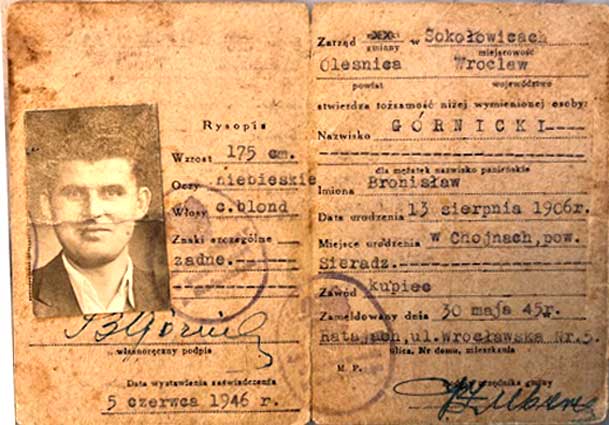 Rysopis
Wzrost 175 cm.
Oczy niebieskie
Włosy c.blond
Znaki szczególne
żadne.
BGórnick
własnoręczny podpis
Data wystawienia zaświadczenia
5 czerwca 1946 r.
Zarząd gminy w Sokołowicach
miejscowość
Oleśnica Wrocław
powiat województwo
stwierdza tożsamość niżej wymienionej osoby:
Nazwisko GÓRNICKI
dla mężatek nazwisko panieńskie
Imiona Bronisław
Data urodzenia 13 sierpnia 1906r.
Miejsce urodzenia w Chojnach, pow.
Sieradz.
Zawód kupiec
Zameldowany dnia 30 maja 45r.
Ratajach, ul. Wrocławska Nr. 5.
ulica, Nr domu, mieszkania
M. P.
urzędnika gminy